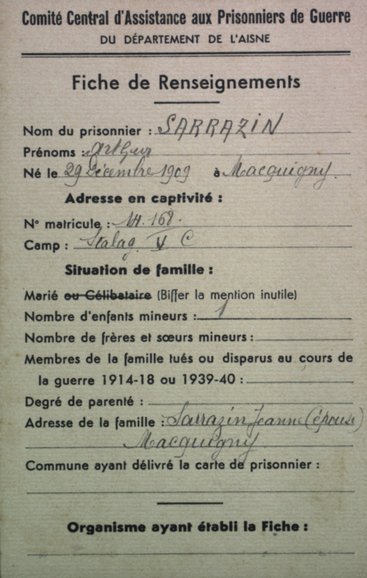 Comité Central d'Assistance aux Prisonniers de Guerre
DU DÉPARTEMENT DE L'AISNE
Fiche de Renseignements
Nom du prisonnier : SARRAZIN
Prénoms : Arthur
Né le 29 Décembre 1909 à Macquigny.
Adresse en captivité :
N° matricule : 14.168.
Camp : Stalag V C
Situation de famille :
Marié ou Célibataire (Biffer la mention inutile)
Nombre d'enfants mineurs : 1
Nombre de frères et sœurs mineurs :
Membres de la famille tués ou disparus au cours de
la guerre 1914-18 ou 1939-40 :
Degré de parenté :
Adresse de la famille : Sarrazin Jeanne (épouse)
Macquigny
Commune ayant délivré la carte de prisonnier :
Organisme ayant établi la Fiche :